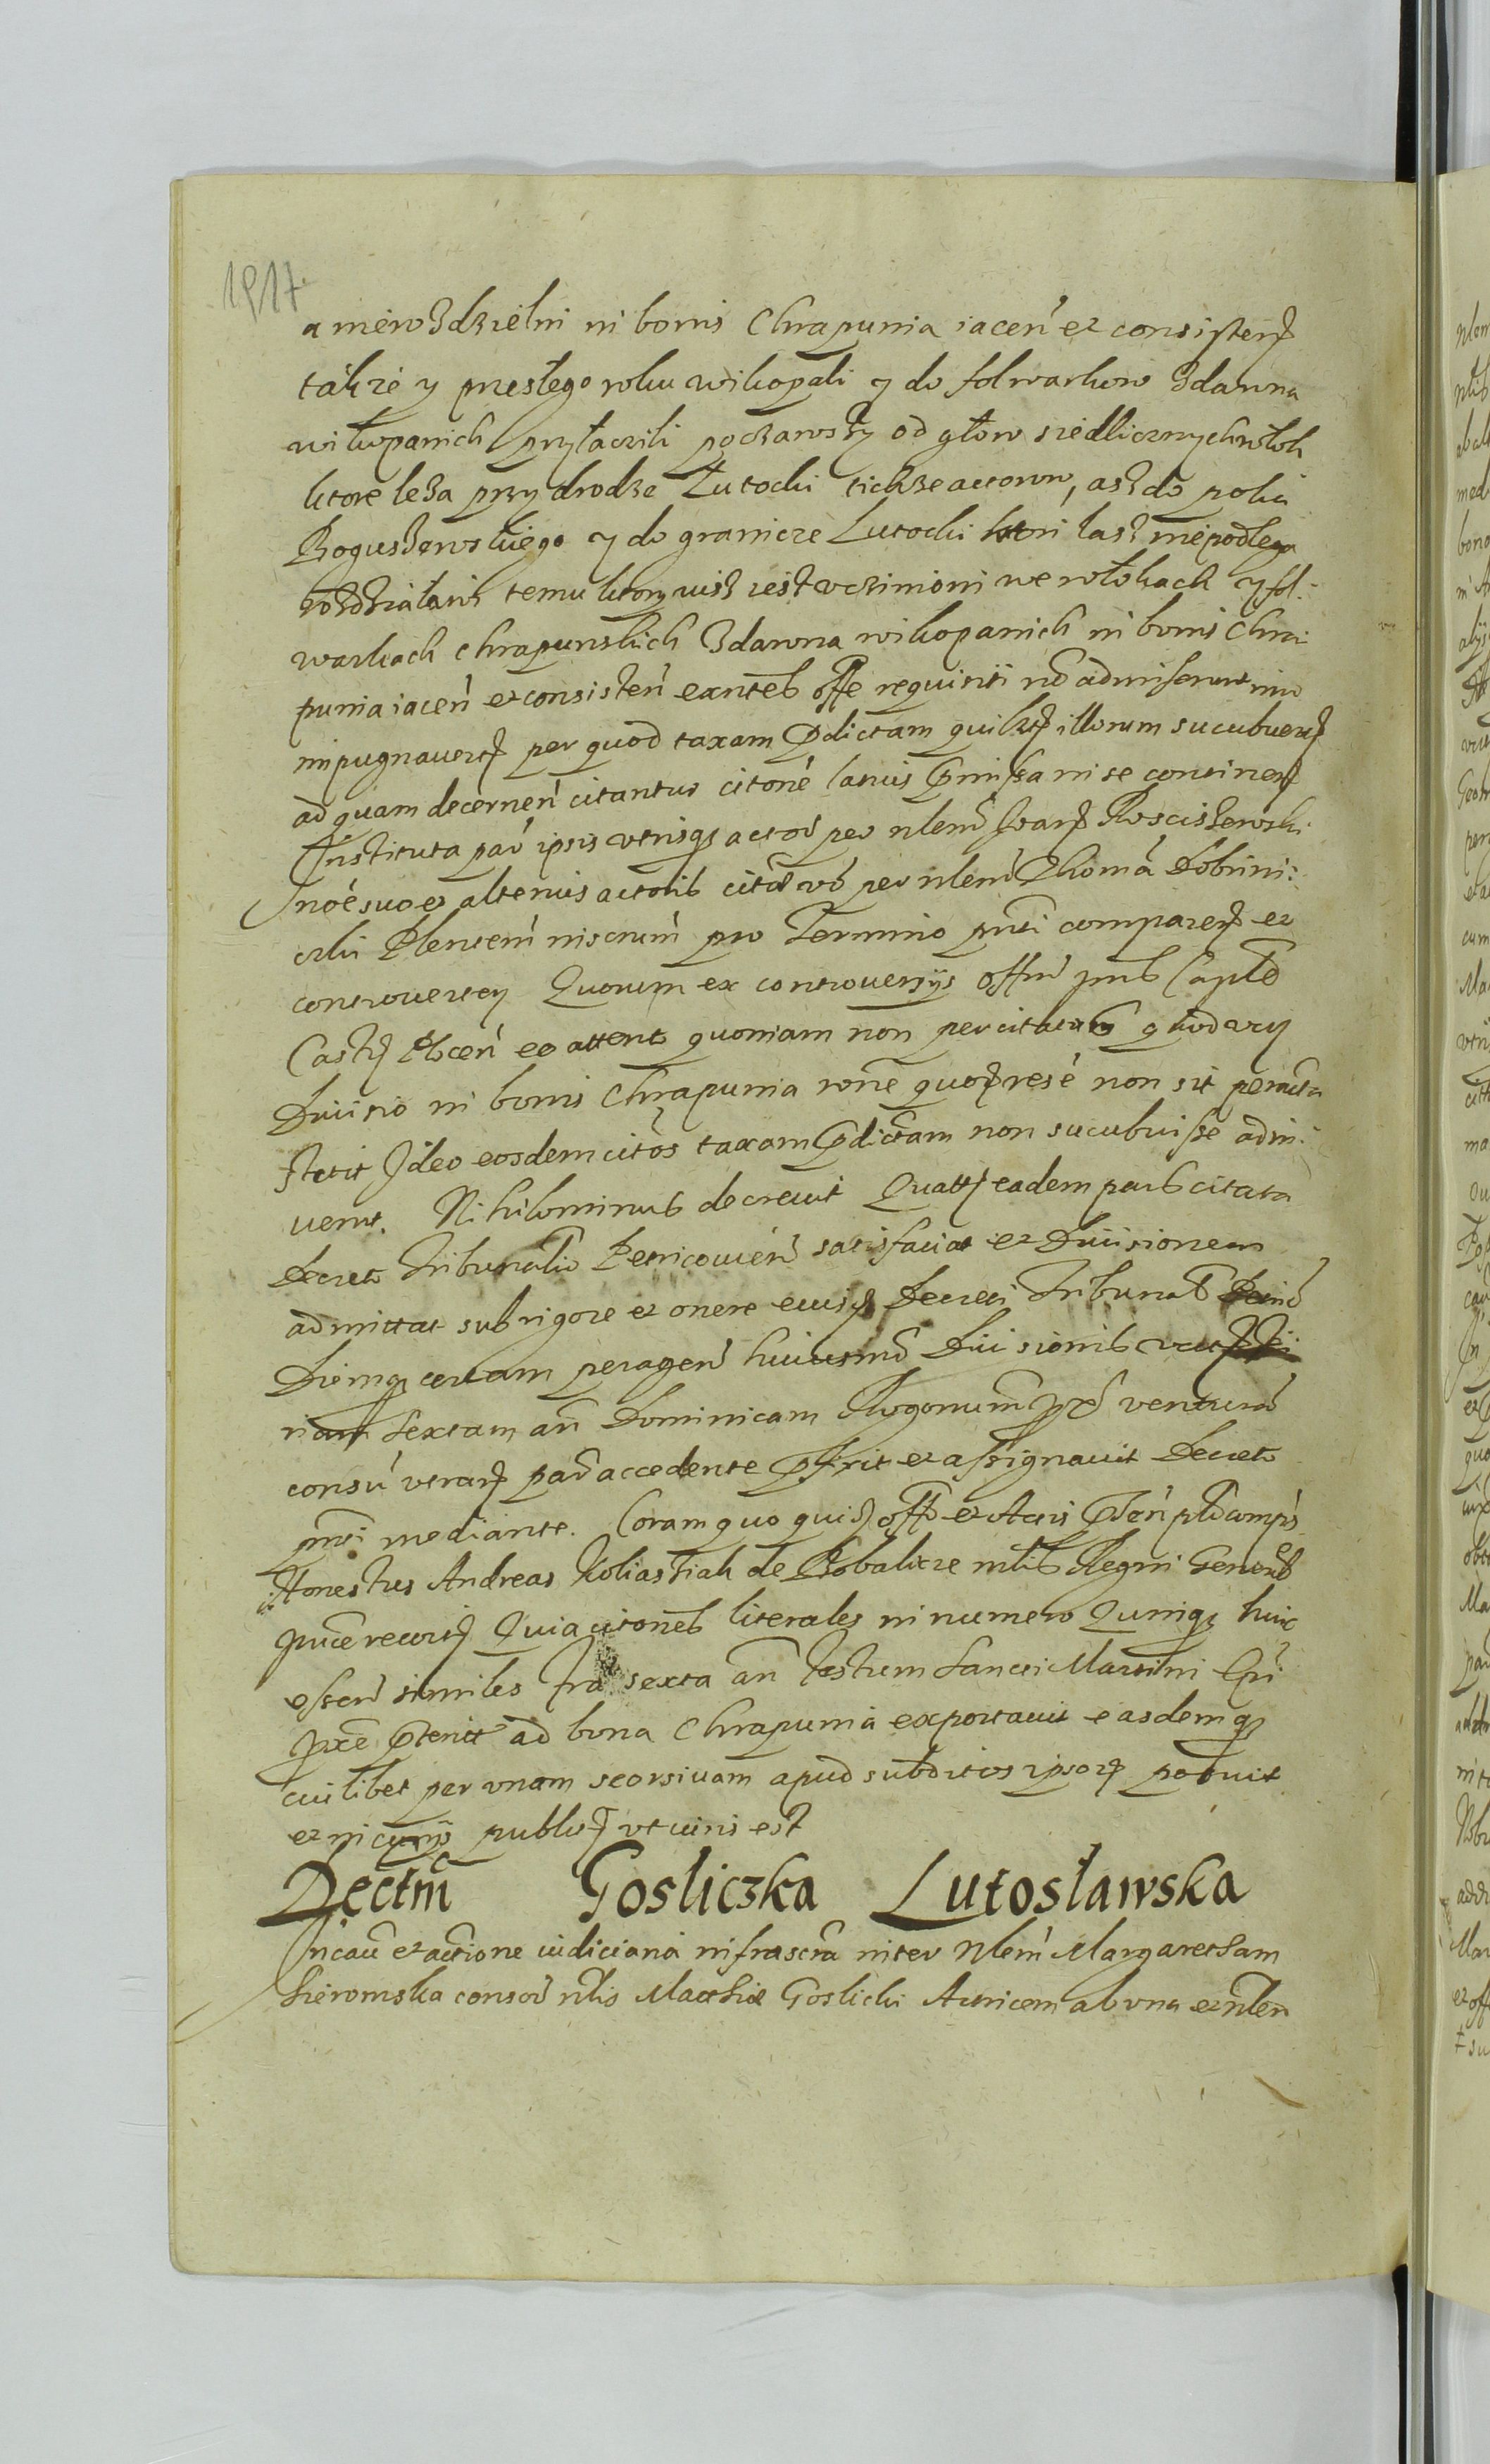 1917.
a nierozdzielni in bonis Chrapunia iaceń et consisteń
takze y przesłego roku wikopali y do folwarkow zdawna
wikopanich przyłaczili poczawszy od głow siedlicznych włok
ktore leza przy drodze Lutocki tichze actorow, asz do polia
Boguszewskiego y do granicze Lutocki ktori lasz niepodlega
rozdziałowi temu ktory iusz iest vczinioni we włokach y fol-
warkach Chrapunskich zdawna wikopanich in bonis Chra-
punia iaceń et consisteń exnteb offe requisiti nō admiserunt imo
impugnauerunt per quod taxam p̄dictam quilibet illorum sucubuerunt
ad quam decerneń citantur citone latius p̄missa in se continen
Instituta par ipsis vtrisq3 actor per nlem Joan Rosciszewski
noe suo et alterius actorib citār vō per nlem Thomā Dobrini-
cki Plentem in termino pro Termino pnti comparen et
controuerten Quorum ex controuersijs offm pns Capld
Castr Plocen eo attento quoniam non per citatum quod
Diuisio in bonis Chrapunia rone quor res e non sit peracta
stetit Ideo eosdem citōs taxam p̄dictam non sucubuisse adin-
uenit. Nihilominus decreuit Quatt eadem pars citata
Decreto Tribunalio Petricouien satisfaciat et Diuisionem
admittat sub rigore et onere eiusd Decreti Tribunal
Diemq3 certam peragen huiusmō Diuisionis
riam Sextam an Dominicam Rogonum px̄e ventura
consu vtrar par accedente p̄fixit et assignauit Decreto
pnti mediante. Coram quo quid offo et Actis Plocen compns
Honestus Andreas Koliastiak de Robalicze mlis Regni Genelb
pnce recort Quia citoneb literales in numero Quinq3 huic
essen similes fra sexta an festum Sancti Martini Epi
px̄e p̄terit ad bona Chrapunia exportauit easdemq3
cuilibet per vnam seorsiuam apud subditos ipsor posuit
et in cur publit vt iuris est
Dectm Gosliczka Lutosławska
In cau et actione iudiciaria infrascra inter Nlem Margaretham
Sieromska consor nlis Mathie Goslicki Actricem ab vna et nlem